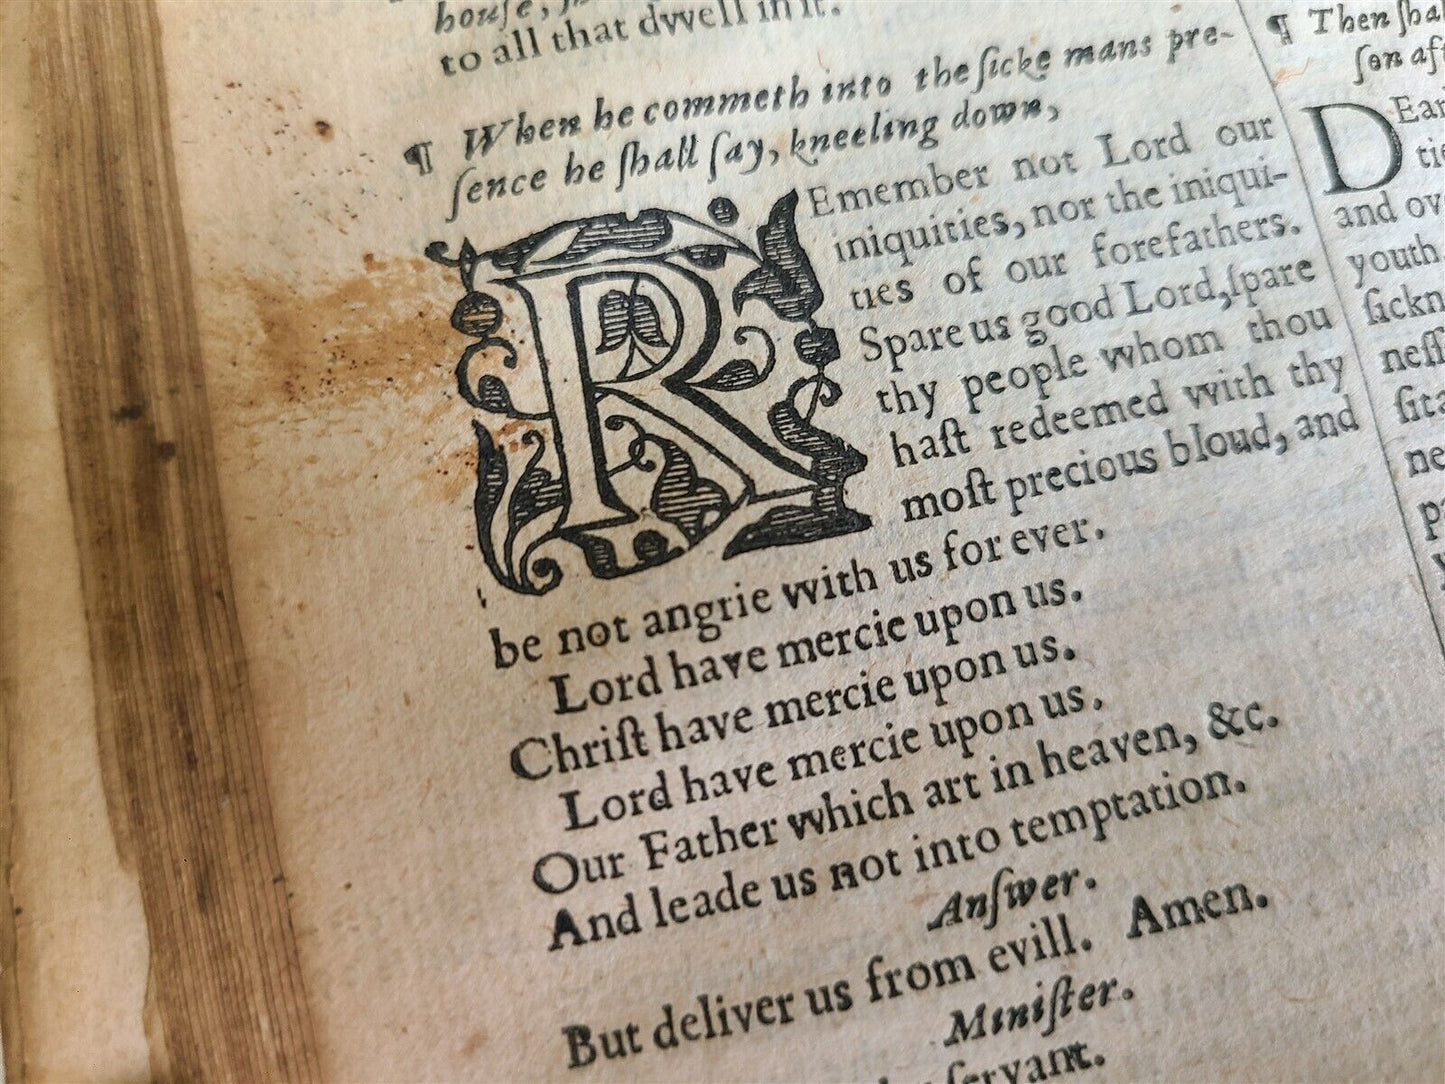 house,
to all that dwell in it.
¶ When he commeth into the ſicke mans pre-
ſence he ſhall ſay, kneeling down,
REmember not Lord our
iniquities, nor the iniqui-
ties of our forefathers.
Spare us good Lord, ſpare
thy people whom thou
haſt redeemed with thy
moſt precious bloud, and
be not angrie with us for ever.
Lord have mercie upon us.
Chriſt have mercie upon us.
Lord have mercie upon us.
Our Father which art in heaven, &c.
And leade us not into temptation.
Anſwer.
But deliver us from evill. Amen.
Miniſter.
ſervant.
¶ Then ſha
ſon aft
DEar
tie
and ov
youth
ſickn
neſſ
ſita
ne
p